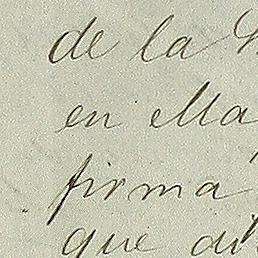 de la
en Ma
firma
que di